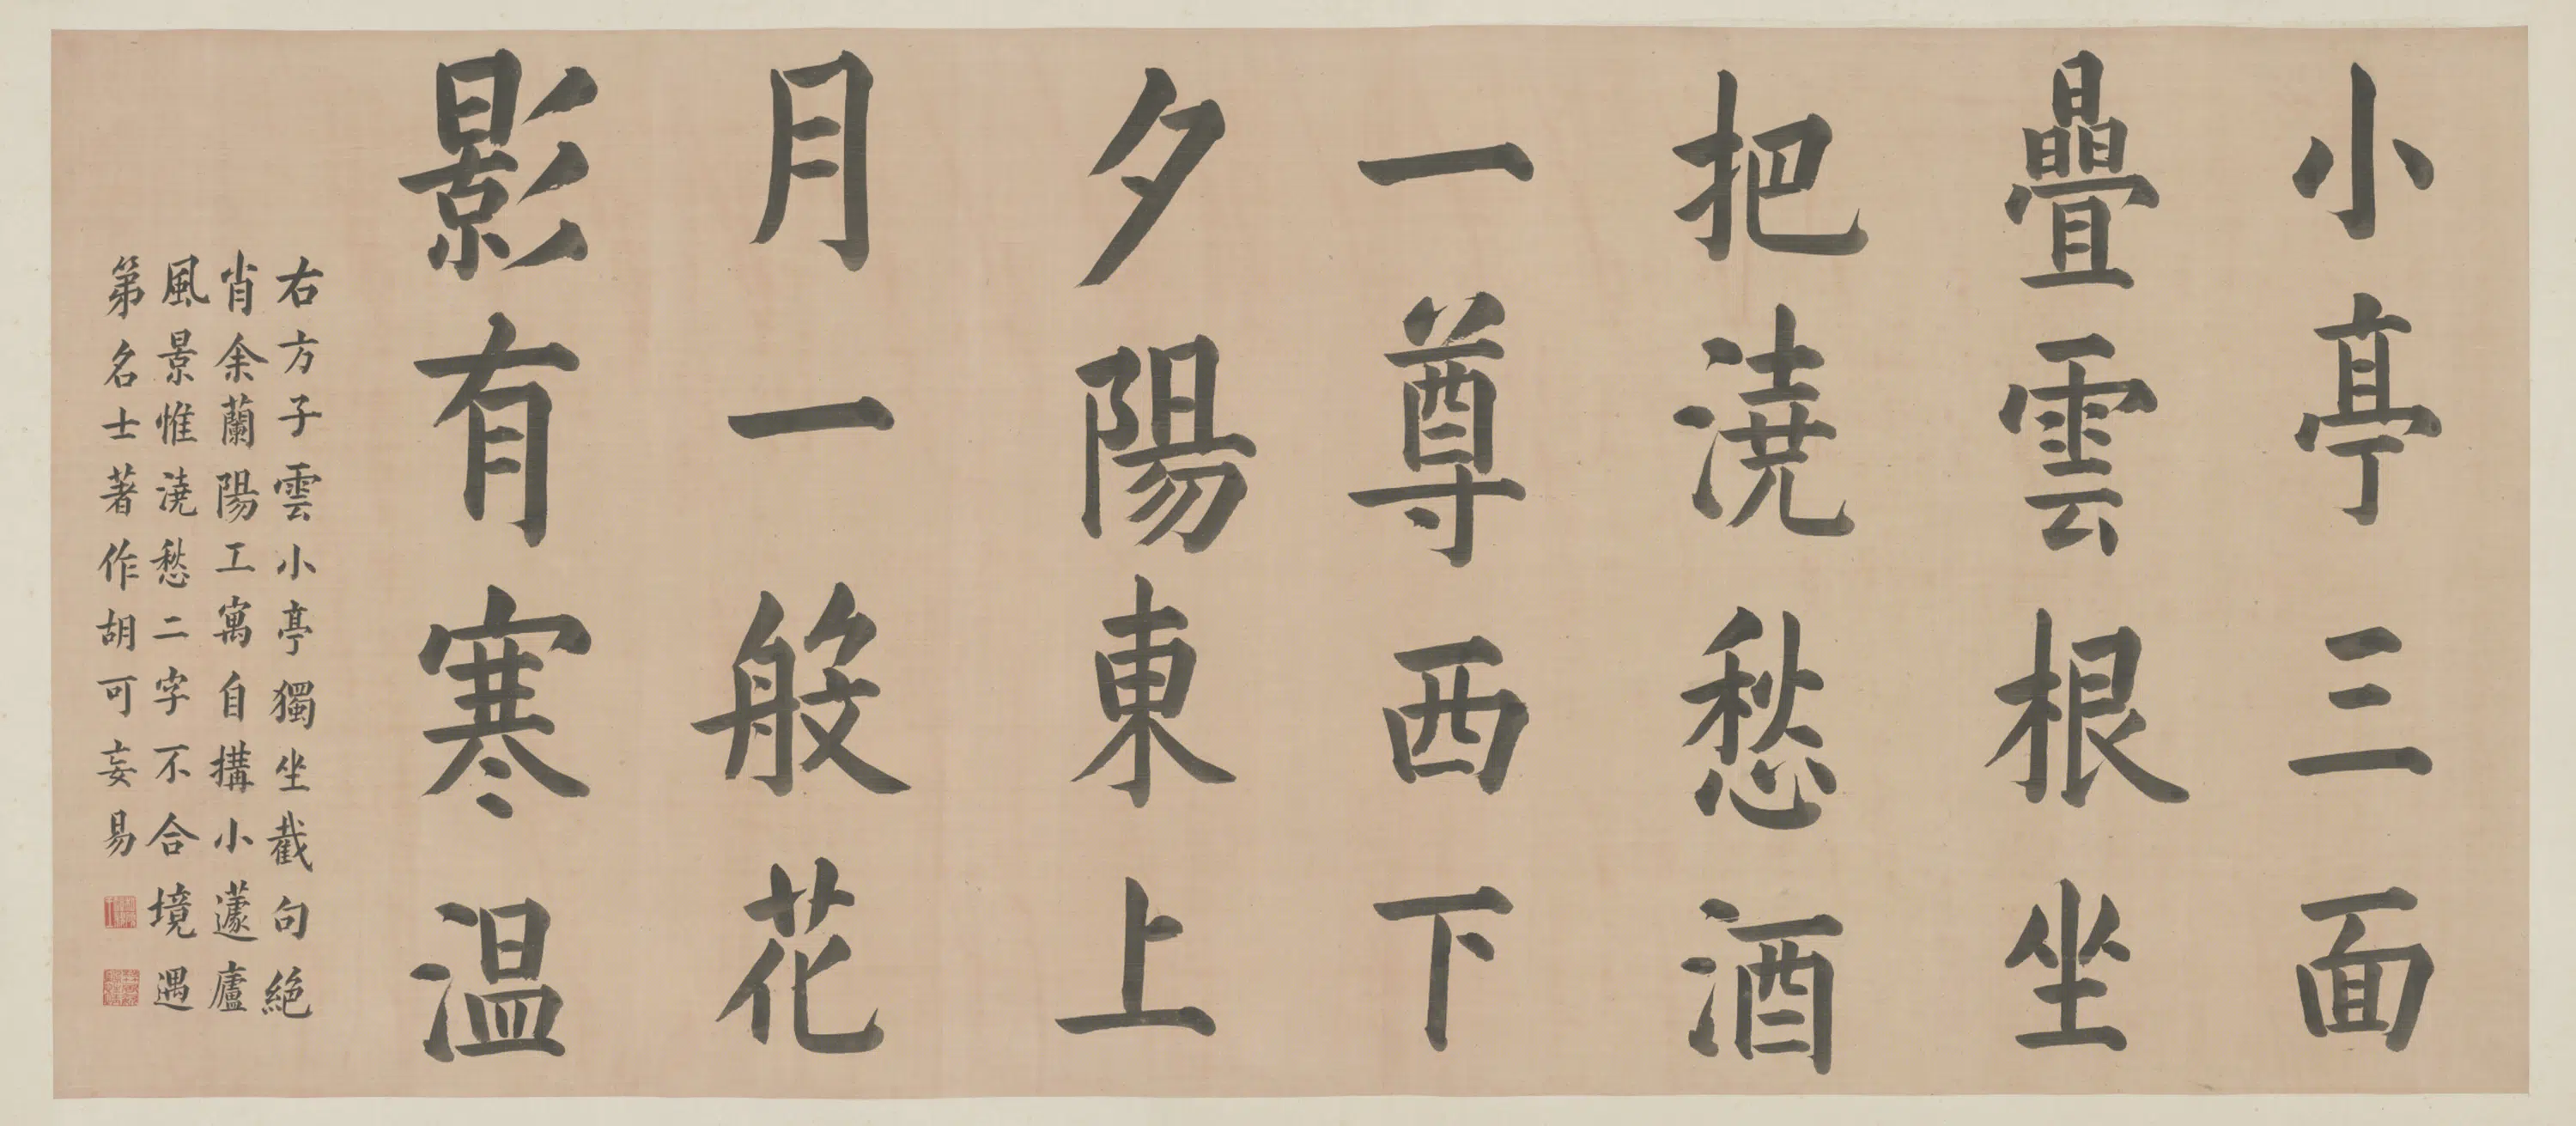 小亭三面
疊雲根坐
把澆愁酒
一尊西下
夕陽東上
月一般花
影有寒温
右方子雲小亭獨坐截句絕
肖余蘭陽工寓自搆小蘧廬
風景惟澆愁二字不合境遇
第名士著作胡可妄易